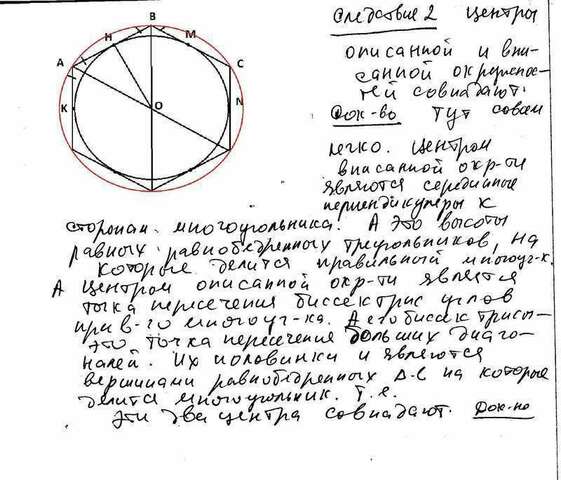 B
H
M
A
C
K
N
O
Следствие 2 Центры
описанной и впи-
санной окружнос-
тей совпадают.
Док-во Тут совсем
легко. Центром
вписанной окр-ти
являются серединные
перпендикуляры к
сторонам многоугольника. А это высоты
равных равнобедренных треугольников, на
которые делится правильный многоуг-к.
А центром описанной окр-ти является
точка пересечения биссектрис углов
прав-го многоуг-ка. А его биссектрисы-
это точка пересечения больших диаго-
налей. Их половинки и являются
вершинами равнобедренных Δ-в на которые
делится многоугольник. Т.е.
эти два центра совпадают. Док-но